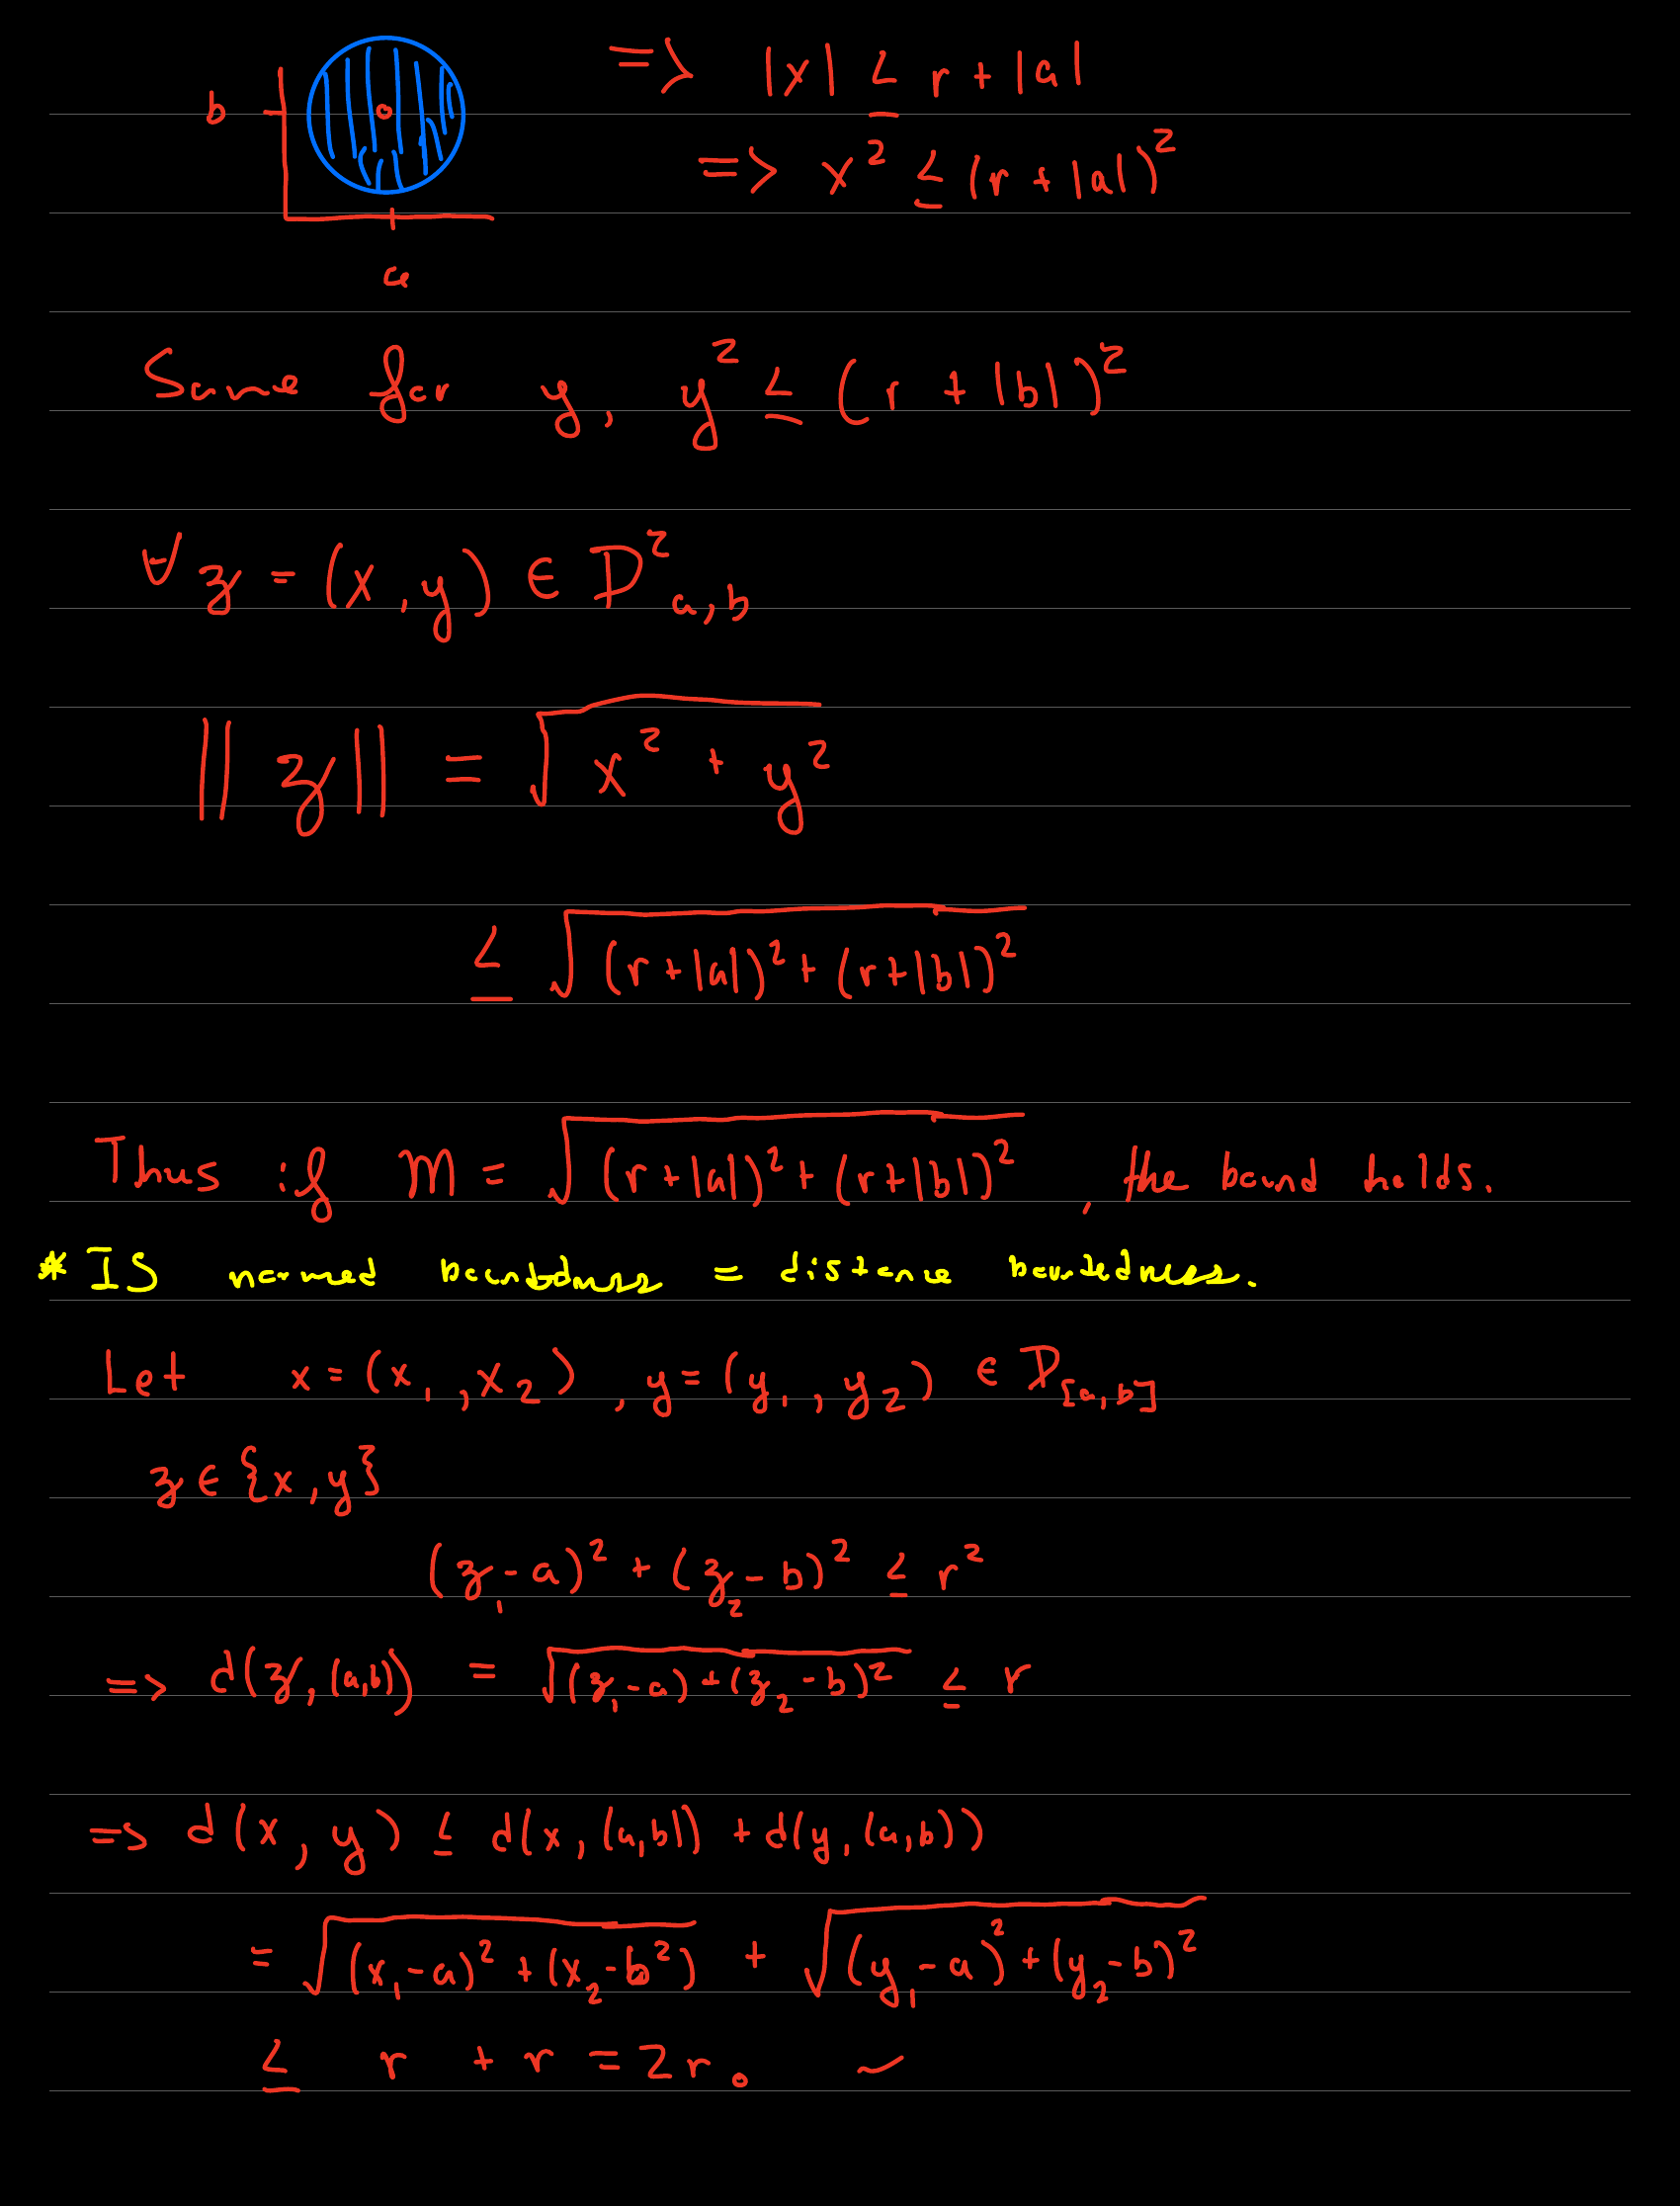 b
=> |x| ≤ r + |a|
=> x² ≤ (r + |a|)²
a
Same for y, y² ≤ (r + |b|)²
∀ z = (x, y) ∈ D²a,b
|| z || = √(x² + y²)
≤ √((r+|a|)² + (r+|b|)²)
Thus if M = √((r+|a|)² + (r+|b|)²), the bound holds.
* IS normed = distance boundedness.
Let x = (x₁, x₂), y = (y₁, y₂) ∈ D[a,b]
z ∈ {x, y}
(z₁ - a)² + (z₂ - b)² ≤ r²
=> d(z, (a,b)) = √((z₁ - a) + (z₂ - b)²) ≤ r
=> d(x, y) ≤ d(x, (a,b)) + d(y, (a,b))
= √((x₁ - a)² + (x₂ - b²)) + √((y₁ - a)² + (y₂ - b)²)
≤ r + r = 2r.